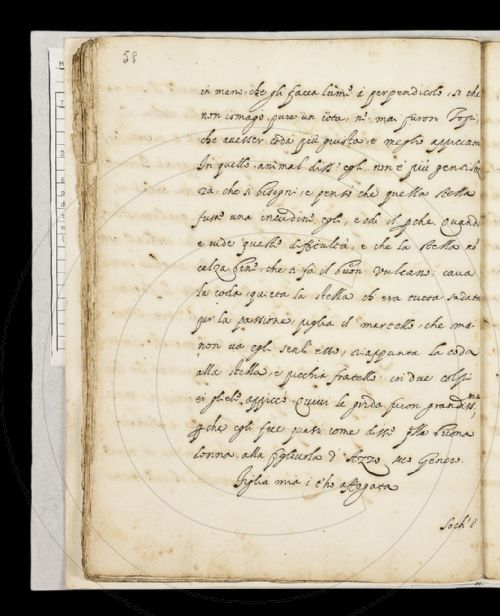 58
in mano, che gli facea lume a perpendicolo, si che
non iscmago pure un iota, ne mai furon Tosi,
che avesser coda più giusta, e meglio appiccata
In quello animal diss' egli non è più gentilez
za, che si bisogni, e pensò che quella stella
fusse una incudine egli, e odi il perche. Quando
e vide quella difficultà, e che la stella
calza bene, che ti fa il buon Vulcano, cava
la coda, quieta la stella ch' era tutta sudata
per la passione, piglia il martello, che ma-
non va egli senz' esso, appunta la coda
alla stella, e picchia fratello: in due colpi
ei gliele appiccò Quivi le grida furon grandiss.me
perche egli fece quasi come disse quella buona
donna alla figliuola d' Azzo suo Genero.
Figlia mia i t'ho affogata